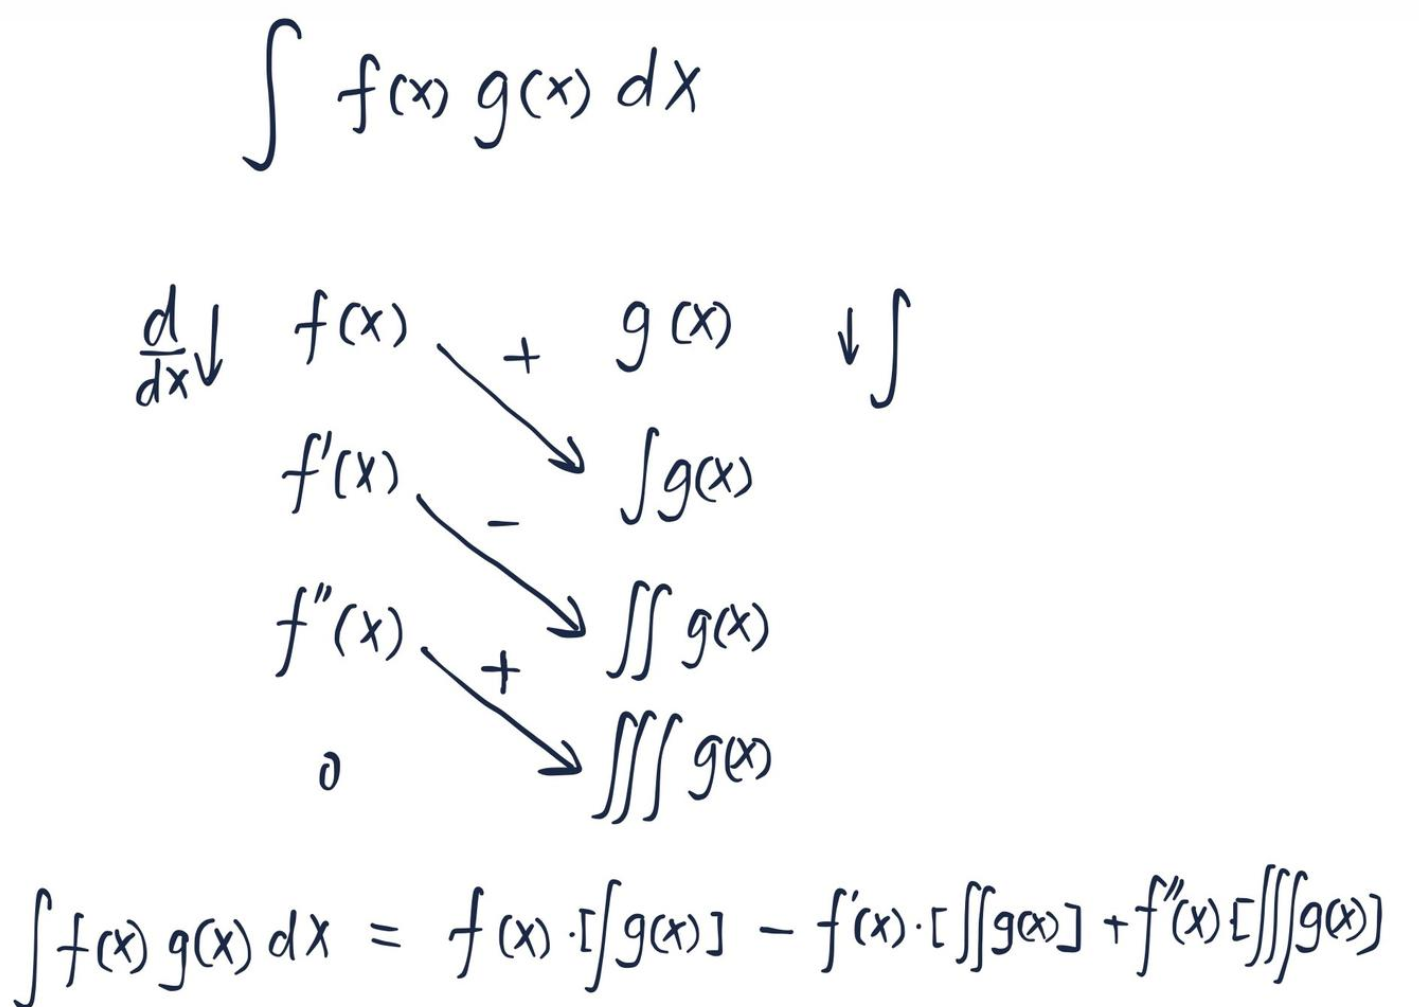 ∫ f(x) g(x) dx
d/dx ↓ f(x) + g(x) ↓ ∫
f'(x) − ∫g(x)
f''(x) + ∬ g(x)
0 ∭ g(x)
∫ f(x) g(x) dx = f(x) · [∫g(x)] − f'(x) · [∬g(x)] + f''(x) [∭g(x)]